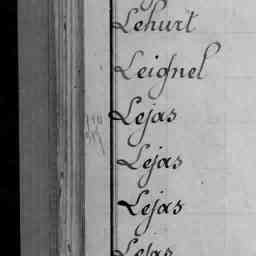 Lehurt
Leignel
Lejas
Lejas
Lejas
Lejas